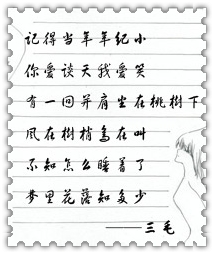 记得当年年纪小
你爱谈天我爱笑
有一回并肩坐在桃樹下
风在樹梢鸟在叫
不知怎么睡着了
梦里花落知多少
——三毛